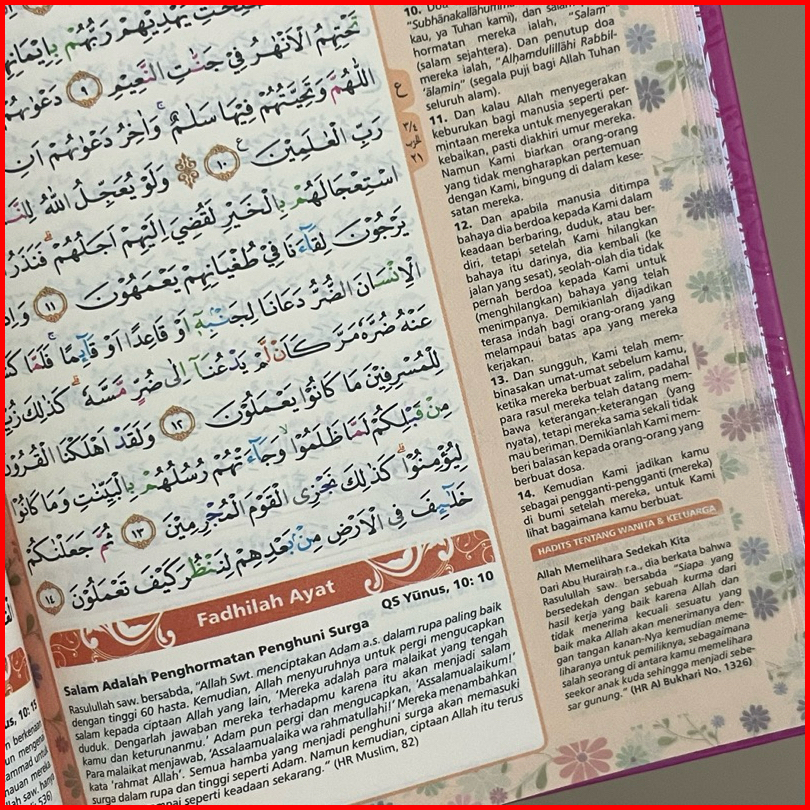 يَهْدِيْهِمْ رَبُّهُمْ بِاِيْمَانِهِمْ
تَحْتِهِمُ الْاَنْهٰرُ فِيْ جَنّٰتِ النَّعِيْمِ ٩ دَعْوٰىهُمْ
اللّٰهُمَّ وَتَحِيَّتُهُمْ فِيْهَا سَلٰمٌۚ وَاٰخِرُ دَعْوٰىهُمْ اَنِ
رَبِّ الْعٰلَمِيْنَ ࣖ ١٠ وَلَوْ يُعَجِّلُ اللّٰهُ
اسْتِعْجَالَهُمْ بِالْخَيْرِ لَقُضِيَ اِلَيْهِمْ اَجَلُهُمْۗ فَنَذَرُ
يَرْجُوْنَ لِقَاۤءَنَا فِيْ طُغْيَانِهِمْ يَعْمَهُوْنَ ١١
الْاِنْسَانَ الضُّرُّ دَعَانَا لِجَنْۢبِهٖٓ اَوْ قَاعِدًا اَوْ قَاۤىِٕمًاۚ فَلَمَّا
عَنْهُ ضُرَّهٗ مَرَّ كَاَنْ لَّمْ يَدْعُنَآ اِلٰى ضُرٍّ مَّسَّهٗۗ كَذٰلِكَ
لِلْمُسْرِفِيْنَ مَا كَانُوْا يَعْمَلُوْنَ ١٢ وَلَقَدْ اَهْلَكْنَا الْقُرُوْنَ
مِنْ قَبْلِكُمْ لَمَّا ظَلَمُوْاۙ وَجَاۤءَتْهُمْ رُسُلُهُمْ بِالْبَيِّنٰتِ وَمَا كَانُوْا
لِيُؤْمِنُوْاۗ كَذٰلِكَ نَجْزِى الْقَوْمَ الْمُجْرِمِيْنَ ١٣ ثُمَّ جَعَلْنٰكُمْ
خَلٰۤىِٕفَ فِى الْاَرْضِ مِنْۢ بَعْدِهِمْ لِنَنْظُرَ كَيْفَ تَعْمَلُوْنَ ١٤
ع
٣/٤
الحزب
٢١
"Subhānakallāhumma
kau, ya Tuhan kami), dan salam
hormatan mereka ialah, "Salām"
(salam sejahtera). Dan penutup doa
mereka ialah, "Alḥamdulillāhi Rabbil-
'ālamīn" (segala puji bagi Allah Tuhan
seluruh alam).
11. Dan kalau Allah menyegerakan
keburukan bagi manusia seperti per-
mintaan mereka untuk menyegerakan
kebaikan, pasti diakhiri umur mereka.
Namun Kami biarkan orang-orang
yang tidak mengharapkan pertemuan
dengan Kami, bingung di dalam kese-
satan mereka.
12. Dan apabila manusia ditimpa
bahaya dia berdoa kepada Kami dalam
keadaan berbaring, duduk, atau ber-
diri, tetapi setelah Kami hilangkan
bahaya itu darinya, dia kembali (ke
jalan yang sesat), seolah-olah dia tidak
pernah berdoa kepada Kami untuk
(menghilangkan) bahaya yang telah
menimpanya. Demikianlah dijadikan
terasa indah bagi orang-orang yang
melampaui batas apa yang mereka
kerjakan.
13. Dan sungguh, Kami telah mem-
binasakan umat-umat sebelum kamu,
ketika mereka berbuat zalim, padahal
para rasul mereka telah datang mem-
bawa keterangan-keterangan (yang
nyata), tetapi mereka sama sekali tidak
mau beriman. Demikianlah Kami mem-
beri balasan kepada orang-orang yang
berbuat dosa.
14. Kemudian Kami jadikan kamu
sebagai pengganti-pengganti (mereka)
di bumi setelah mereka, untuk Kami
lihat bagaimana kamu berbuat.
HADITS TENTANG WANITA & KELUARGA
Allah Memelihara Sedekah Kita
Dari Abu Hurairah r.a., dia berkata bahwa
Rasulullah saw. bersabda "Siapa yang
bersedekah dengan sebuah kurma dari
hasil kerja yang baik karena Allah dan
tidak menerima kecuali sesuatu yang
baik maka Allah akan menerimanya den-
gan tangan kanan-Nya kemudian meme-
liharanya untuk pemiliknya, sebagaimana
salah seorang di antara kamu memelihara
seekor anak kuda sehingga menjadi sebe-
sar gunung." (HR Al Bukhari No. 1326)
Fadhilah Ayat
QS Yūnus, 10: 10
Salam Adalah Penghormatan Penghuni Surga
Rasulullah saw. bersabda, "Allah Swt. menciptakan Adam a.s. dalam rupa paling baik
dengan tinggi 60 hasta. Kemudian, Allah menyuruhnya untuk pergi mengucapkan
salam kepada ciptaan Allah yang lain, 'Mereka adalah para malaikat yang tengah
duduk. Dengarlah jawaban mereka terhadapmu karena itu akan menjadi salam
kamu dan keturunanmu.' Adam pun pergi dan mengucapkan, 'Assalamualaikum!'
Para malaikat menjawab, 'Assalaamualaika wa rahmatullahi!' Mereka menambahkan
kata 'rahmat Allah'. Semua hamba yang menjadi penghuni surga akan memasuki
surga dalam rupa dan tinggi seperti Adam. Namun kemudian, ciptaan Allah itu terus
seperti keadaan sekarang." (HR Muslim, 82)